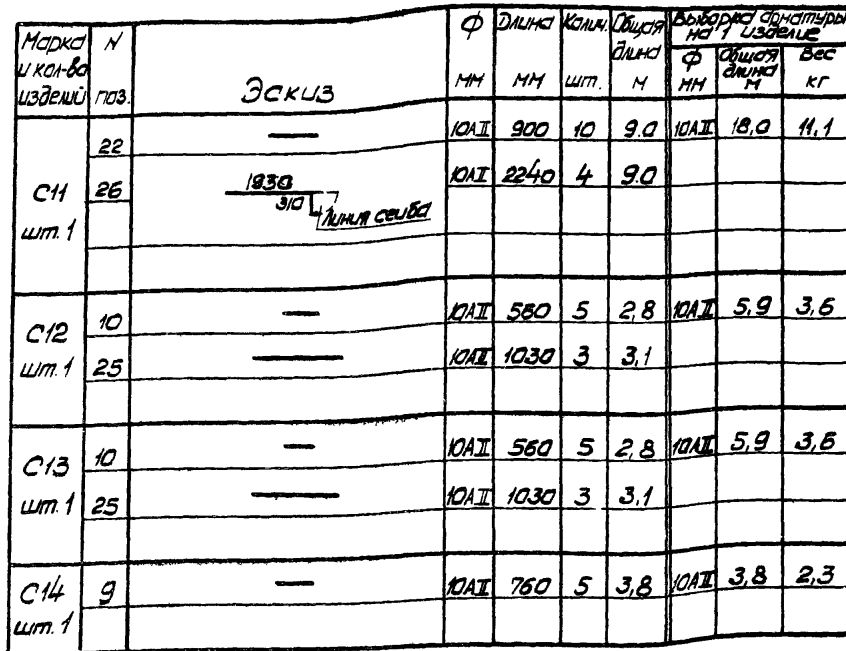 Марка и кол-во изделий | N поз. | Эскиз | Ф мм | Длина мм | Колич. шт. | Общая длина м | Выборка арматуры на 1 изделие
Ф мм | Общая длина м | Вес кг
С11 шт. 1 | 22 | 10АII | 900 | 10 | 9.0 | 10АII | 18,0 | 11,1
26 | 1930 310 Линия сгиба | 10АII | 2240 | 4 | 9.0
С12 шт. 1 | 10 | 10АII | 560 | 5 | 2,8 | 10АII | 5,9 | 3,6
25 | 10АII | 1030 | 3 | 3,1
С13 шт. 1 | 10 | 10АII | 560 | 5 | 2,8 | 10АII | 5,9 | 3,6
25 | 10АII | 1030 | 3 | 3,1
С14 шт. 1 | 9 | 10АII | 760 | 5 | 3,8 | 10АII | 3,8 | 2,3